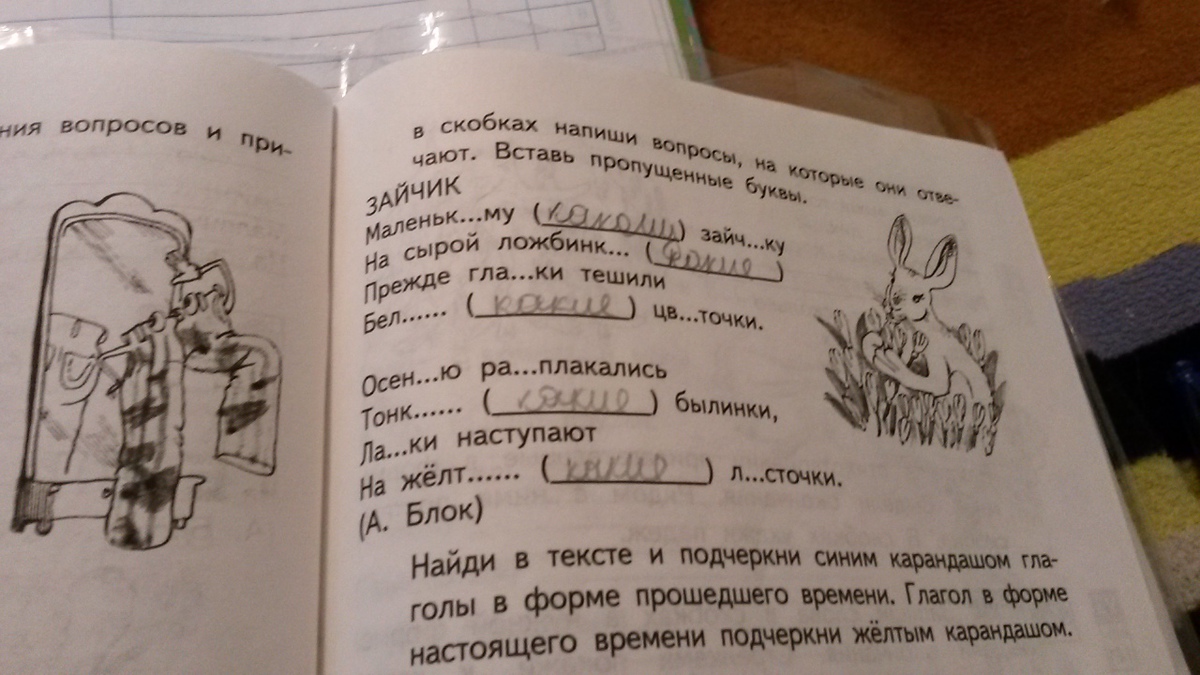 ния вопросов и при-
в скобках напиши вопросы, на которые они отве-
чают. Вставь пропущенные буквы.
ЗАЙЧИК
Маленьк...му (какому) зайч...ку
На сырой ложбинк... (какие)
Прежде гла...ки тешили
Бел...... (какие) цв...точки.
Осен...ю ра...плакались
Тонк...... (какие) былинки,
Ла...ки наступают
На жёлт...... (какие) л...сточки.
(А. Блок)
Найди в тексте и подчеркни синим карандашом гла-
голы в форме прошедшего времени. Глагол в форме
настоящего времени подчеркни жёлтым карандашом.